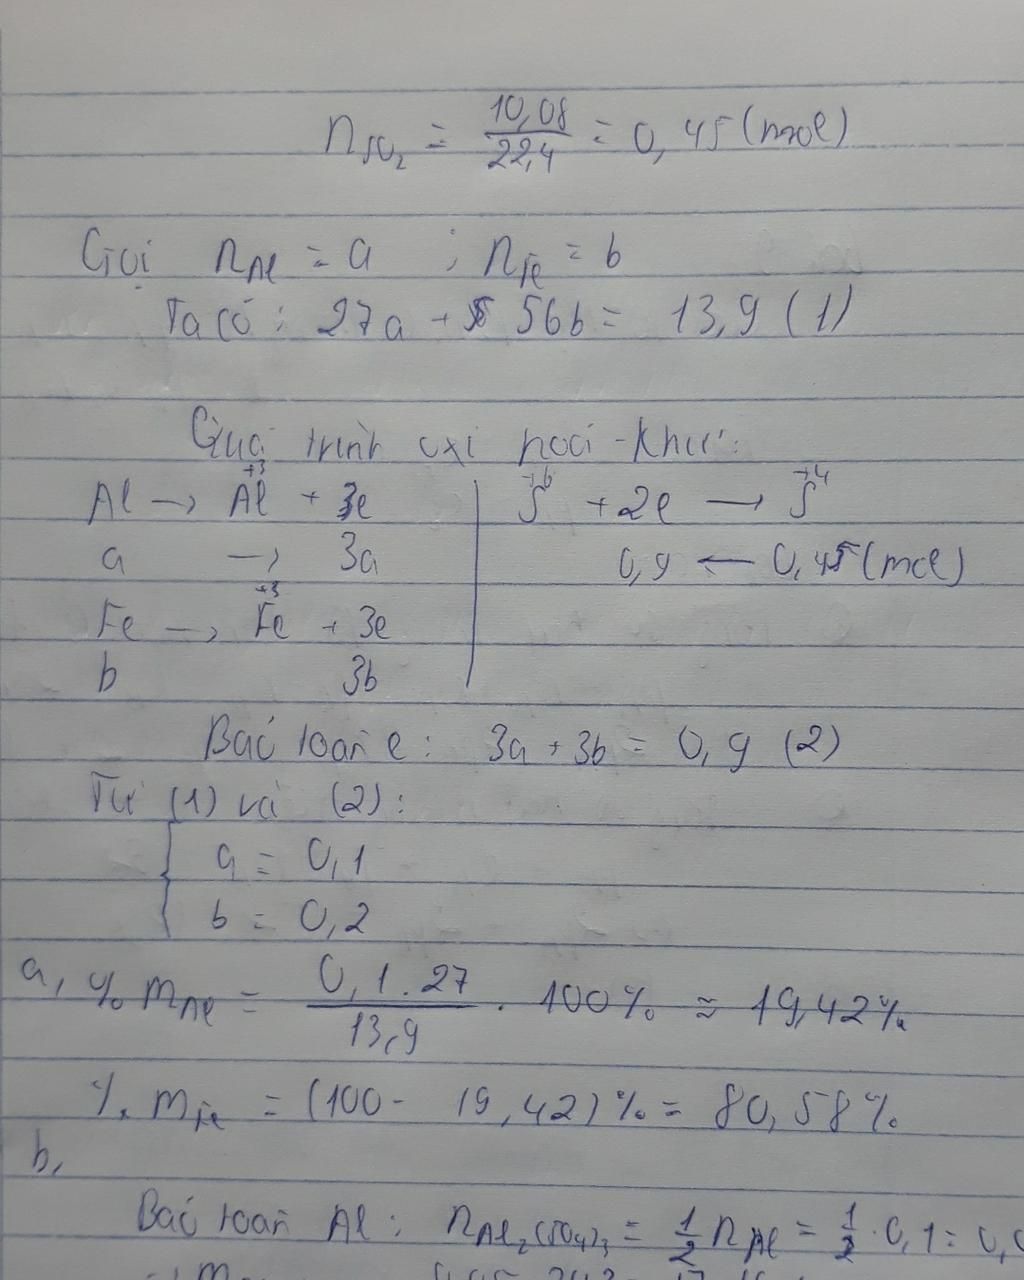 nSO₂ = 10,08/22,4 = 0,45 (mol)
Gọi nAl = a ; nFe = b
Ta có: 27a + 56b = 13,9 (1)
Quá trình oxi hoá - khử:
Al → Al⁺³ + 3e | S⁺⁶ + 2e → S⁺⁴
a → 3a | 0,9 ← 0,45 (mol)
Fe → Fe⁺³ + 3e
b 3b
Bảo toàn e: 3a + 3b = 0,9 (2)
Từ (1) và (2):
{ a = 0,1
b = 0,2
a, % mAl = 0,1.27/13,9 . 100% ≈ 19,42%
% mFe = (100 - 19,42)% = 80,58%
b,
Bảo toàn Al: nAl₂(SO₄)₃ = 1/2 nAl = 1/2 . 0,1 = 0,